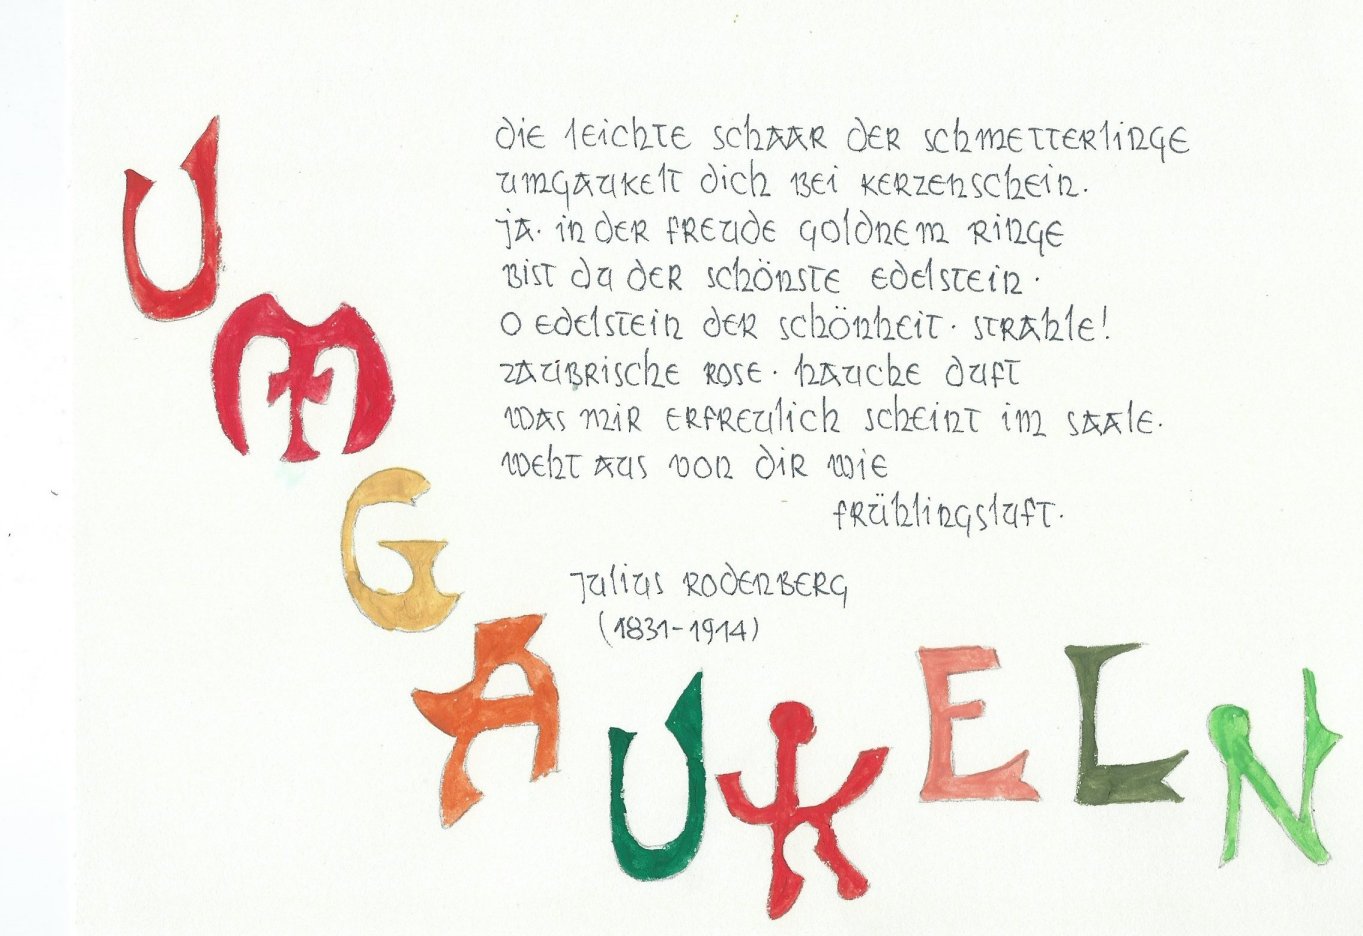 die leichte Schaar der Schmetterlinge
umgaukelt dich bei Kerzenschein.
ja. in der Freude goldnem Ringe
bist du der schönste Edelstein.
O Edelstein der Schönheit. strahle!
zaubrische Rose. hauche Duft
was mir erfreulich scheint im Saale.
weht aus von dir wie
Frühlingsluft.
Julius Rodenberg
(1831-1914)
UMGAUKELN